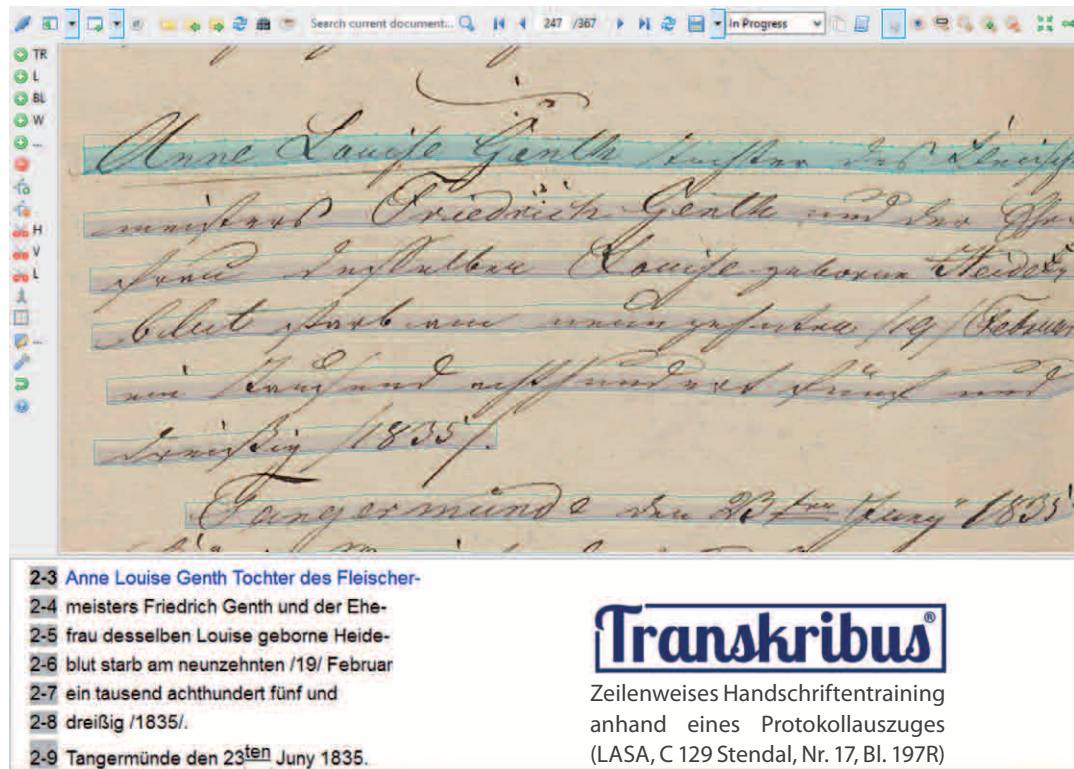 Search current document...
247 /367
In Progress
TR
L
BL
W
...
H
V
L
...
Anne Louise Genth Tochter des Fleisch
meisters Friedrich Genth und der Ehe
frau desselben Louise geborne Heide
blut starb am neunzehnten /19/ Februar
ein tausend achthundert fünf und
dreißig /1835/.
Tangermünde den 23ten Juny 1835
2-3 Anne Louise Genth Tochter des Fleischer-
2-4 meisters Friedrich Genth und der Ehe-
2-5 frau desselben Louise geborne Heide-
2-6 blut starb am neunzehnten /19/ Februar
2-7 ein tausend achthundert fünf und
2-8 dreißig /1835/.
2-9 Tangermünde den 23ten Juny 1835.
Transkribus®
Zeilenweises Handschriftentraining
anhand eines Protokollauszuges
(LASA, C 129 Stendal, Nr. 17, Bl. 197R)